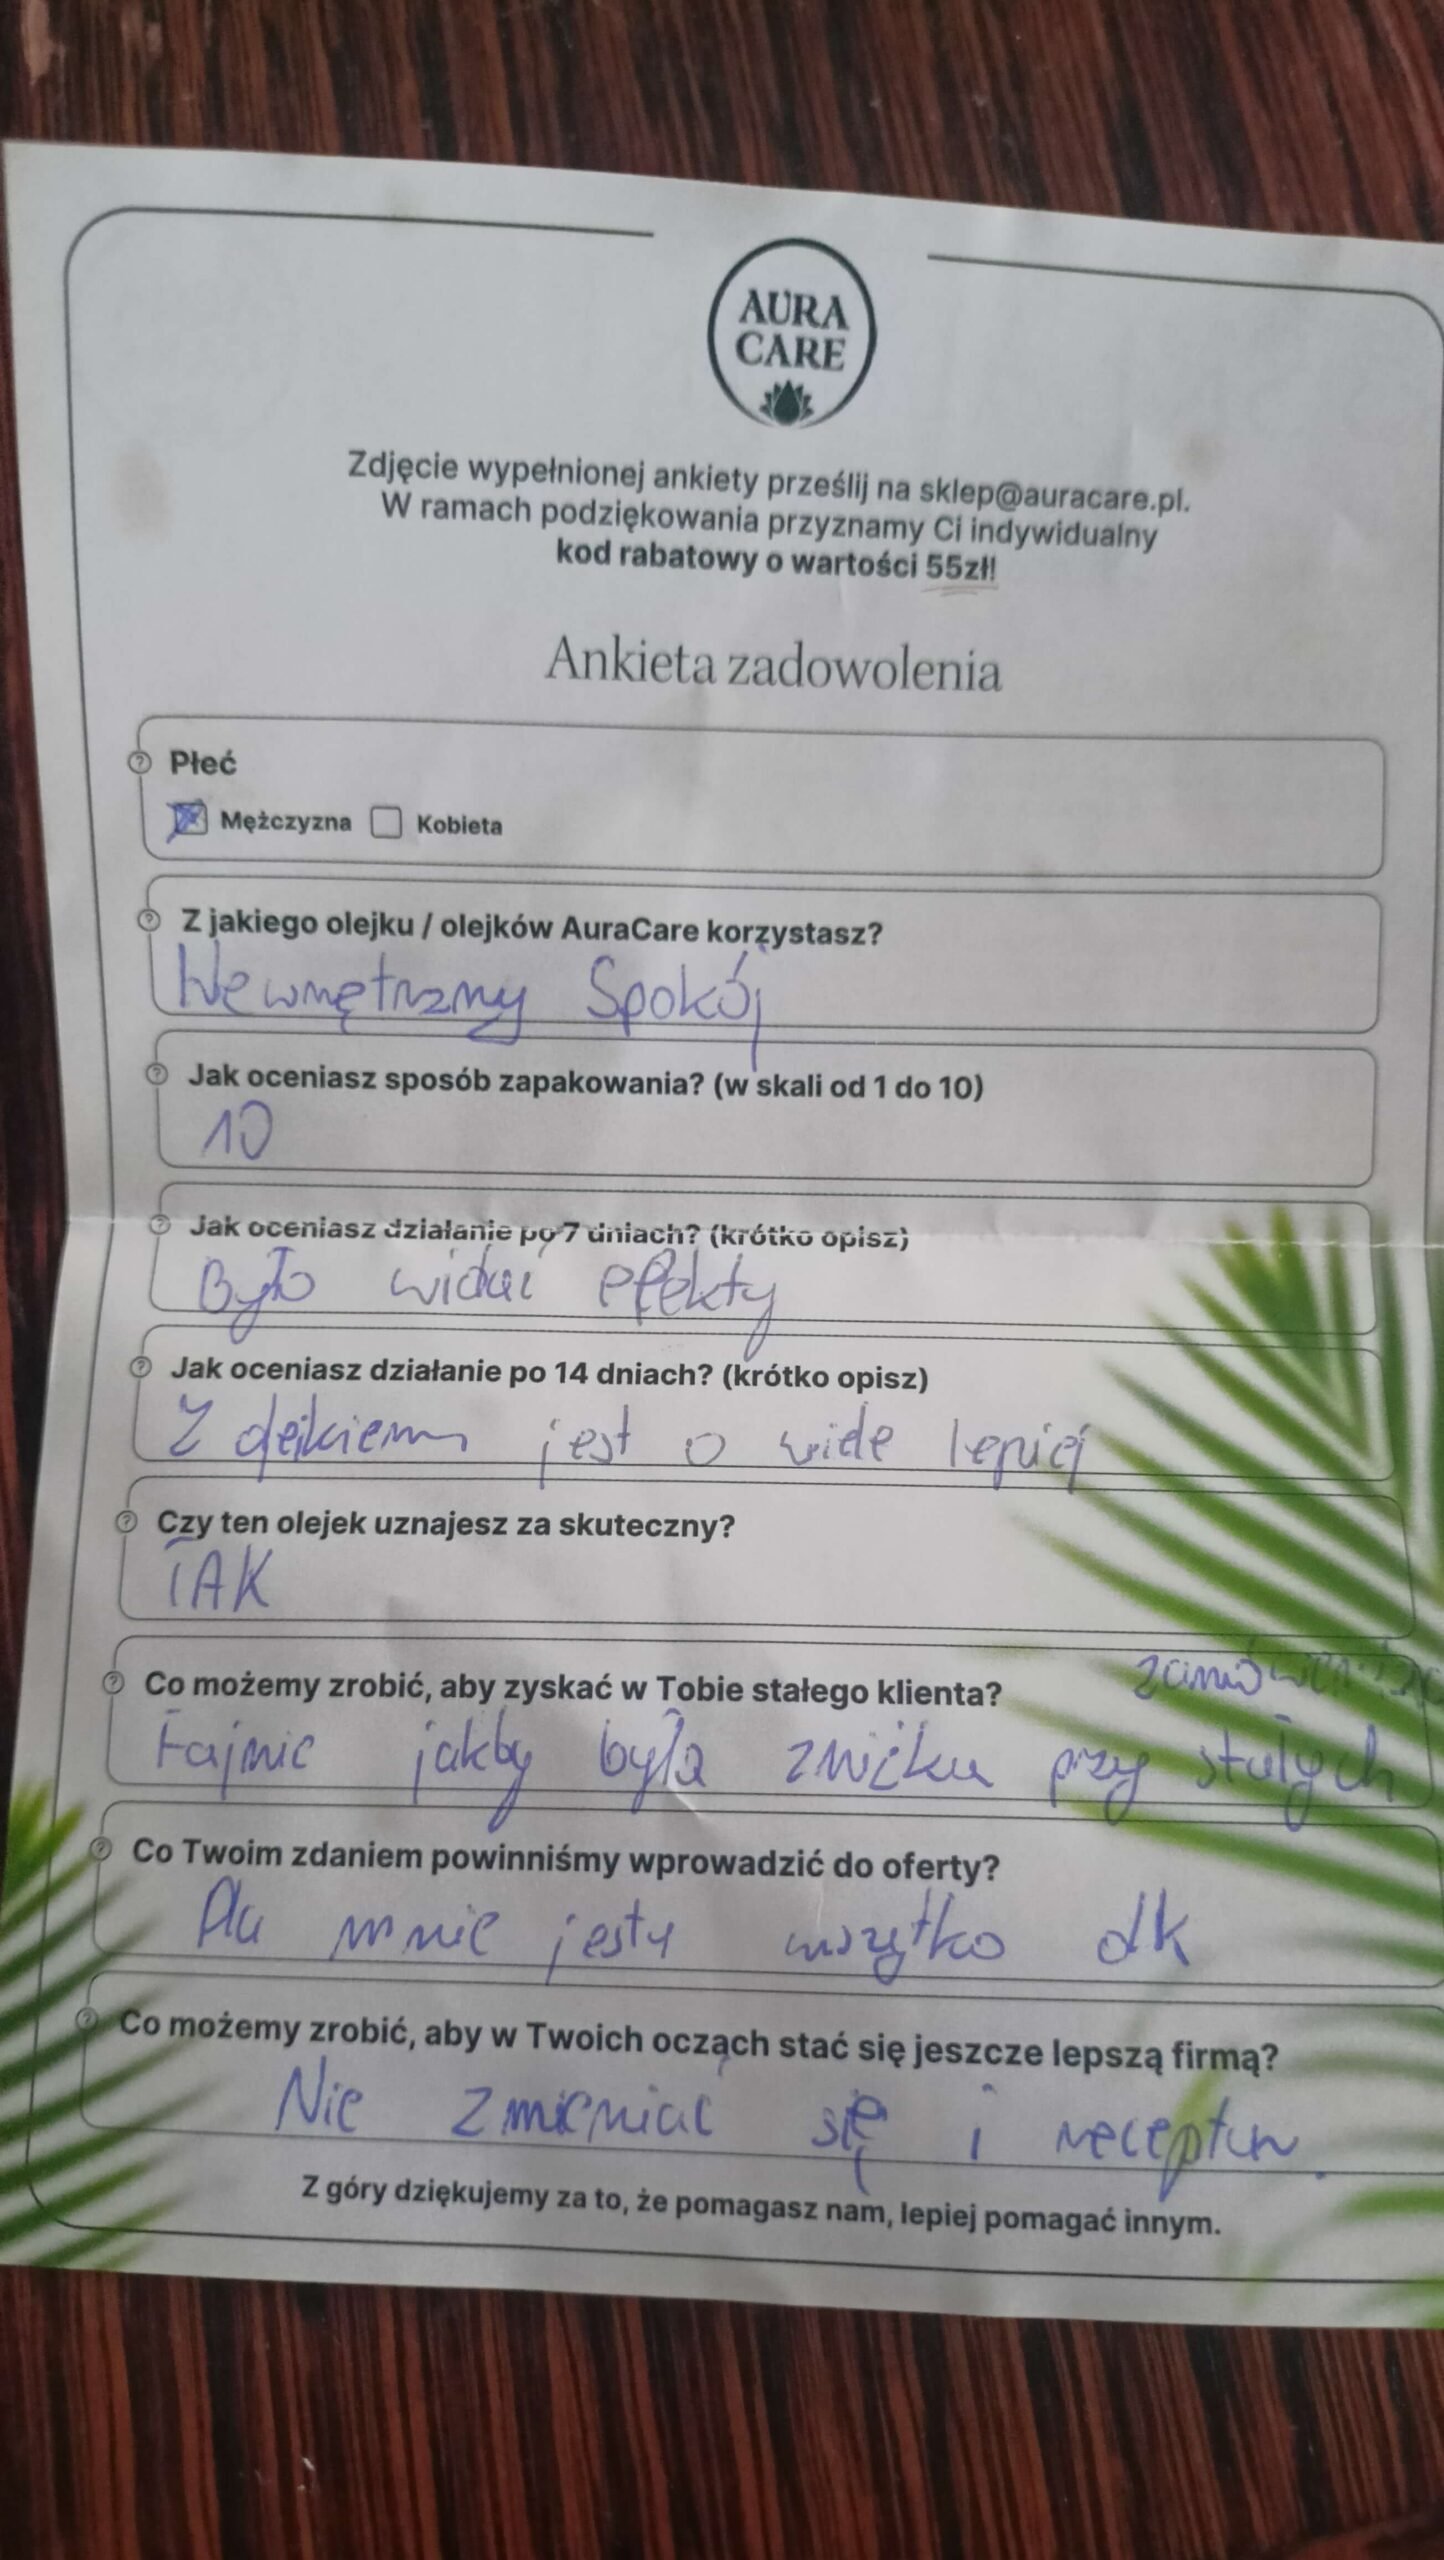 AURA
CARE
Zdjęcie wypełnionej ankiety prześlij na sklep@auracare.pl.
W ramach podziękowania przyznamy Ci indywidualny
kod rabatowy o wartości 55zł!
Ankieta zadowolenia
Płeć
Mężczyzna Kobieta
Z jakiego olejku / olejków AuraCare korzystasz?
Wewnętrzny Spokój
Jak oceniasz sposób zapakowania? (w skali od 1 do 10)
10
Jak oceniasz działanie po 7 dniach? (krótko opisz)
Było widać efekty
Jak oceniasz działanie po 14 dniach? (krótko opisz)
Z olejkiem jest o wiele lepiej
Czy ten olejek uznajesz za skuteczny?
TAK
Co możemy zrobić, aby zyskać w Tobie stałego klienta?
Fajnie jakby była zniżka przy stałych
Co Twoim zdaniem powinniśmy wprowadzić do oferty?
Dla mnie jest wszytko ok
Co możemy zrobić, aby w Twoich oczach stać się jeszcze lepszą firmą?
Nie zmieniać się i receptur.
Z góry dziękujemy za to, że pomagasz nam, lepiej pomagać innym.